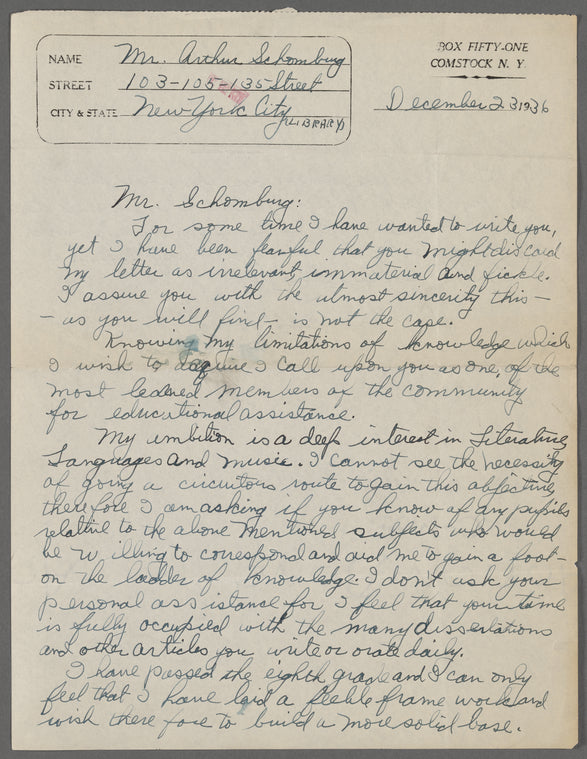 BOX FIFTY-ONE
COMSTOCK N. Y.
NAME Mr. Arthur Schomburg
STREET 103-105-135 Street
CITY & STATE New York City
(LIBRARY)
December 23 1936
Mr. Schomburg:
For some time I have wanted to write you,
yet I have been fearful that you might discard
my letter as irrelevant, immaterial and fickle.
I assure you with the utmost sincerity this —
— as you will find — is not the case.
Knowing my limitations of knowledge which
I wish to acquire I call upon you as one, of the
most learned members of the community
for educational assistance.
My ambition is a deep interest in Literature,
Languages and music. I cannot see the necessity
of going a circuitous route to gain this objective,
therefore I am asking if you know of any pupils
relative to the above mentioned subjects who would
be willing to correspond and aid me to gain a foot-
on the ladder of knowledge. I don't ask your
personal assistance for, I feel that your time
is fully occupied with the many dissertations
and other articles you write or orate daily.
I have passed the eighth grade and I can only
feel that I have laid a feeble frame work and
wish there fore to build a more solid base.